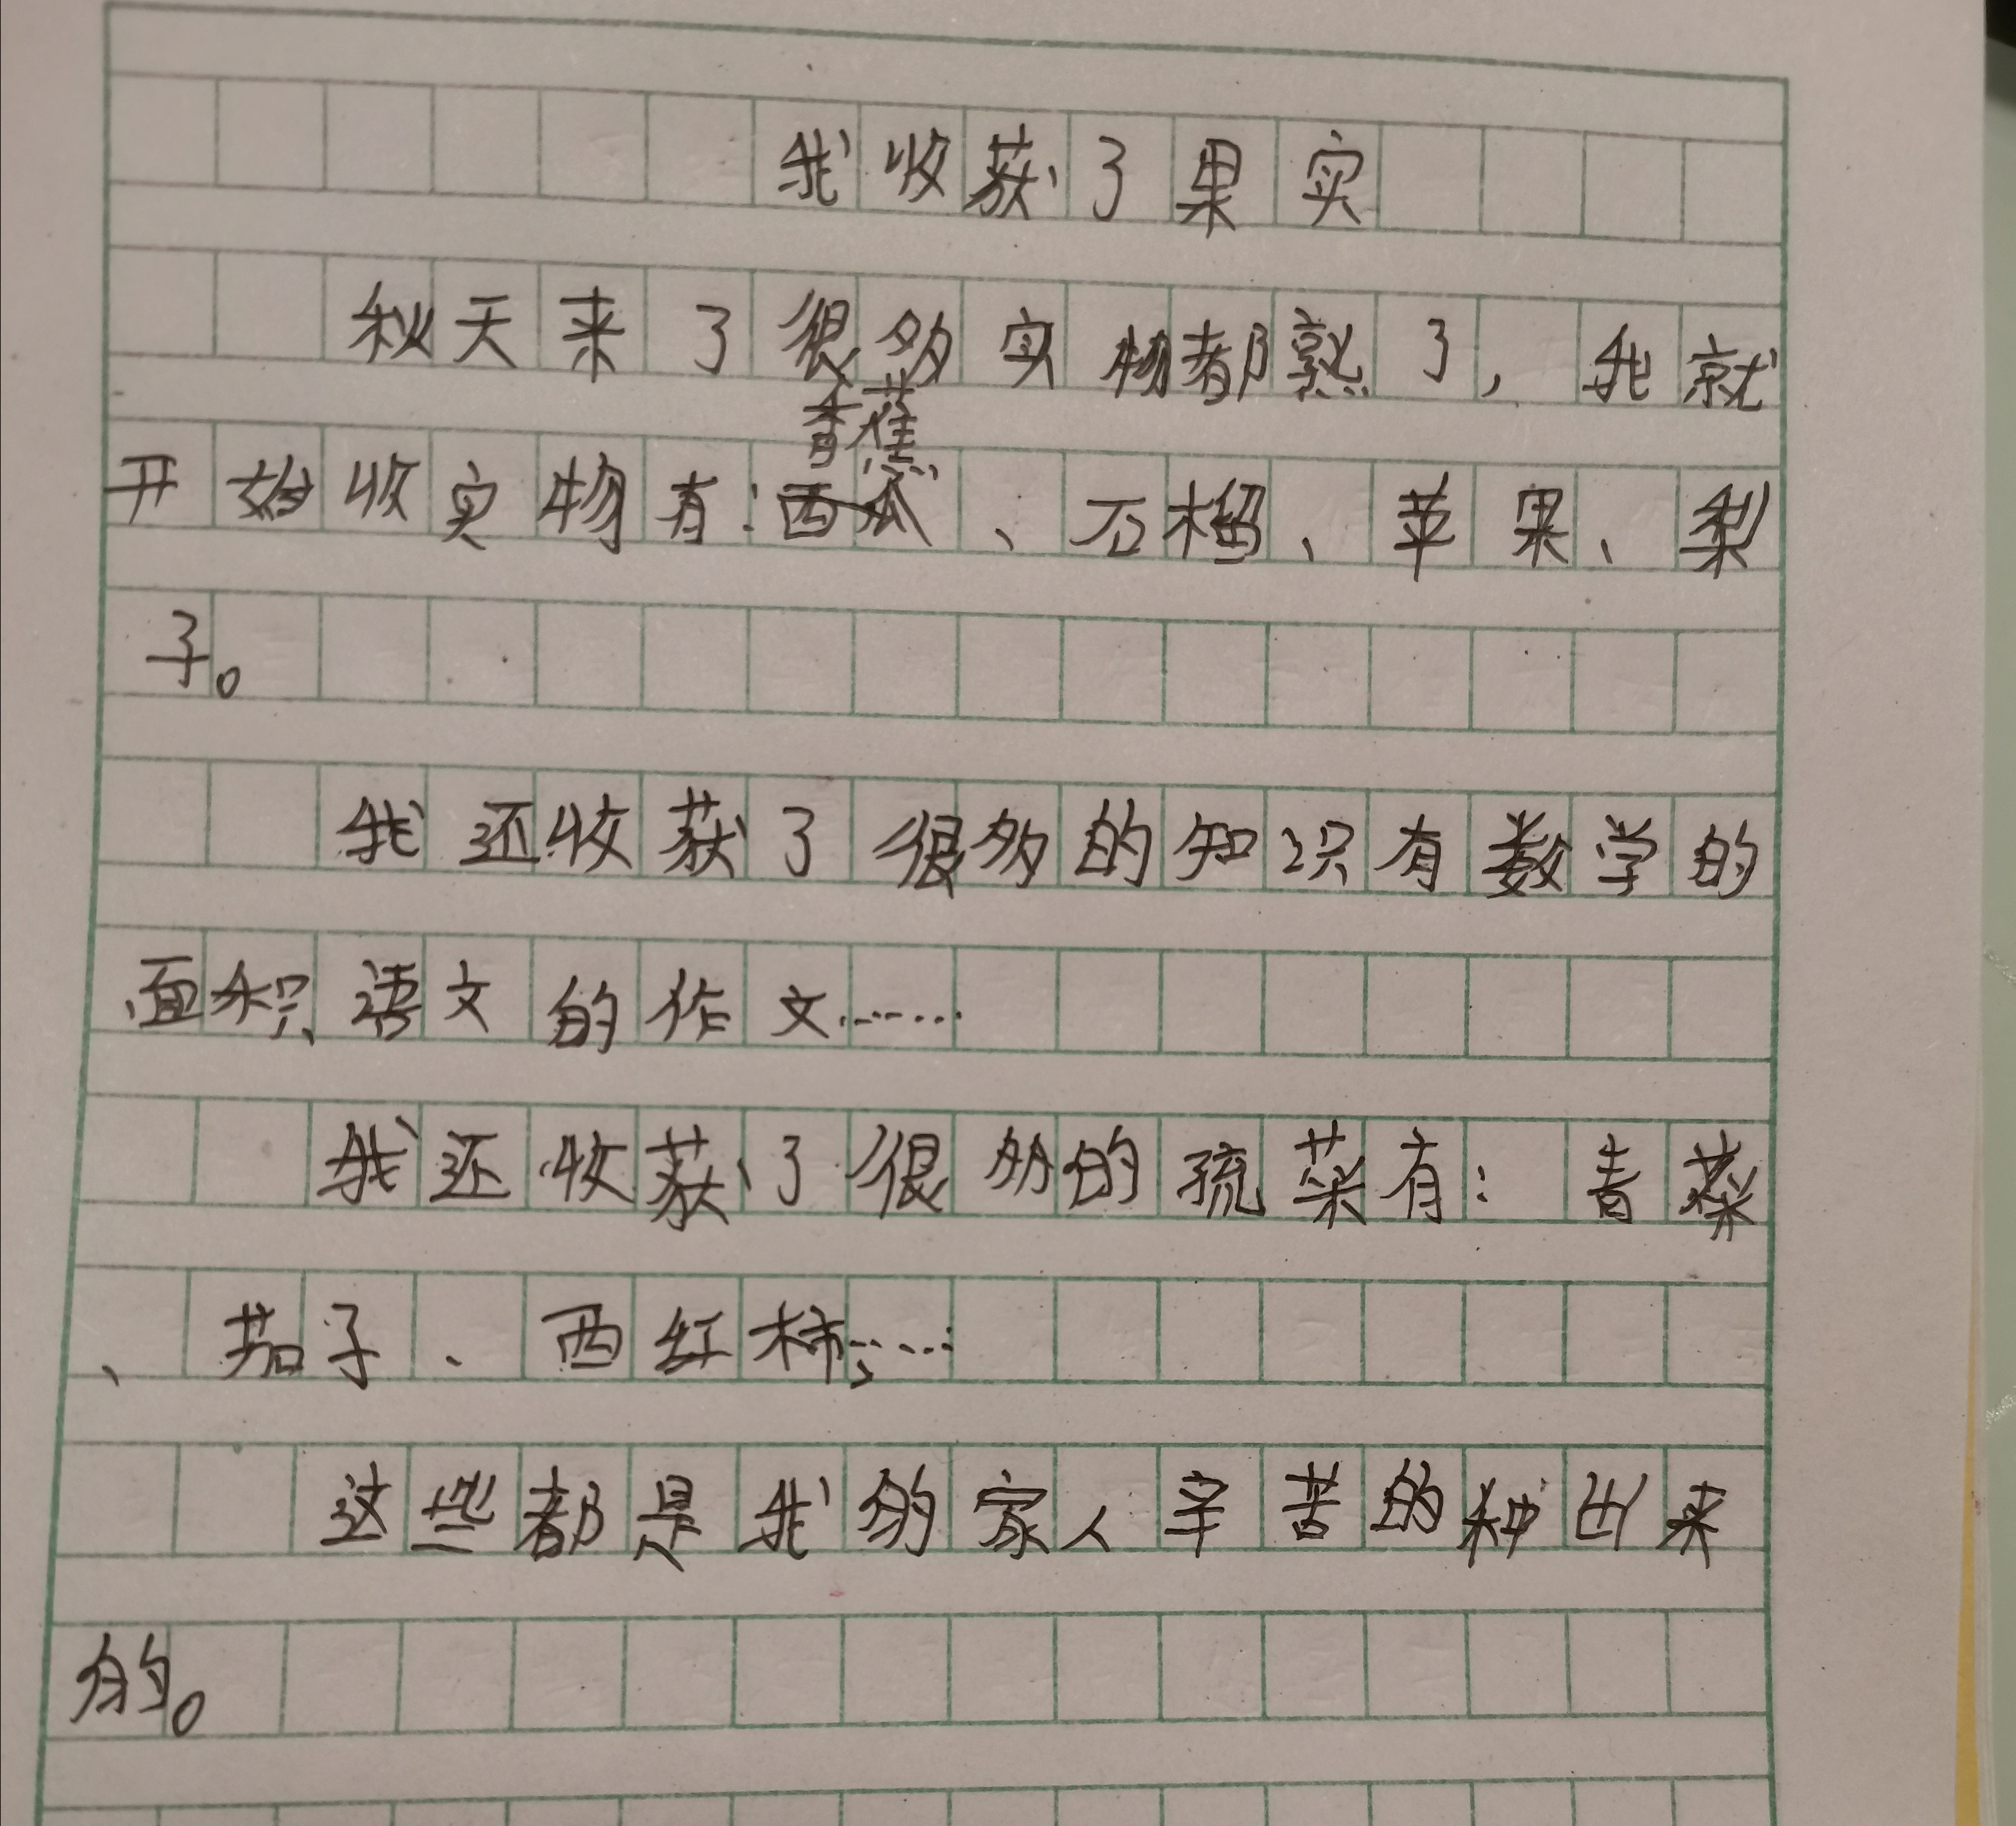 我收获了果实
秋天来了很多实物都熟了，我就
香蕉
开始收实物有：西瓜、石榴、苹果、梨
子。
我还收获了很多的知识有数学的
面积语文的作文……
我还收获了很多的疏菜有：青菜
、茄子、西红柿……
这些都是我的家人辛苦的种出来
的。